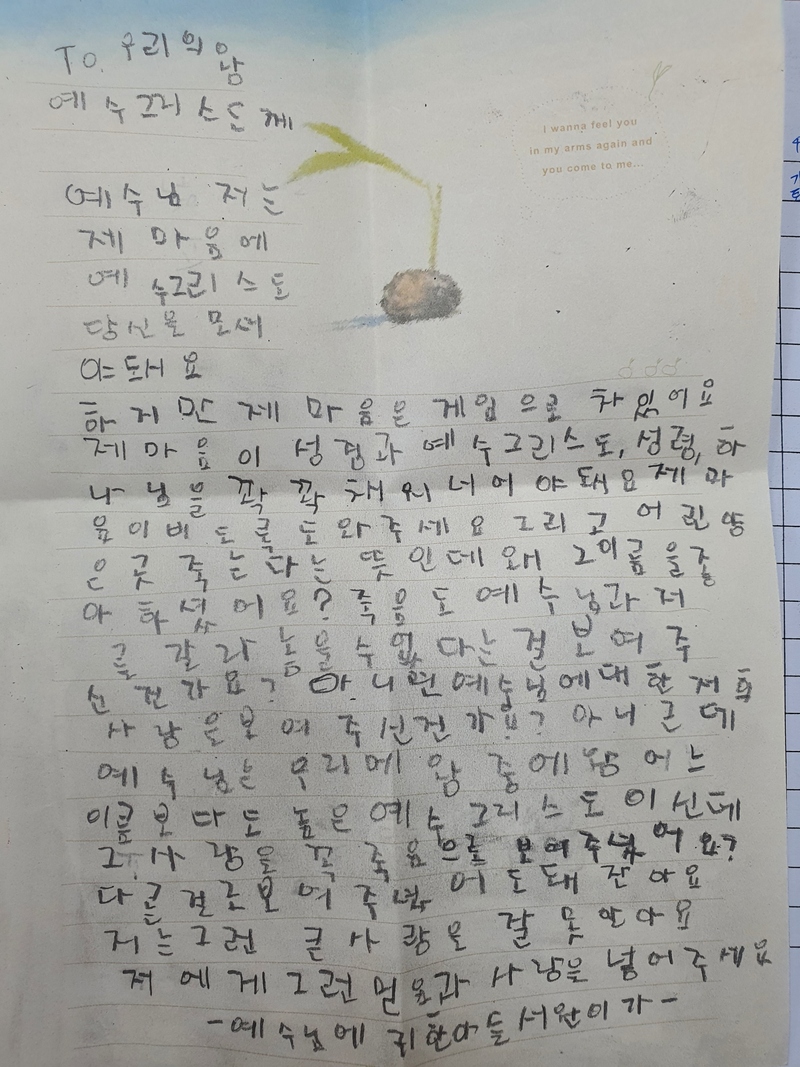 To. 우리의 왕
예수그리스도께
I wanna feel you
in my arms again and
you come to me...
예수님 저는
제 마음에
예수그리스도
당신을 모셔
야돼요
하지만 제 마음은 게임으로 차있어요
제 마음이 성겸과 예수그리스도, 성령, 하
나님을 꽉 꽉 채워 너어야돼요 제 마
음이 비도록 도와주세요 그리고 어린양
은 곳 죽는다는 뜻인데 왜 그이름을 좋
아하셨어요? 죽음도 예수님과 저
를 갈라놓을수 없다는걸 보여주
신건가요? 아니면 예수님에대한 저희
사랑은보여주신건가요? 아니근데
예수님는 우리에 왕 중에왕 어느
이름보다도 높은 예수그리스도이신데
그사랑을 꼭 죽음으로 보여주넜어요?
다른걸로보여주넜어도돼잔아요
저는그런 큰사랑은 잘 못안아요
저에게그런 믿음과 사랑을 넣어주세요
-예수님에 귀한아들서완이가-